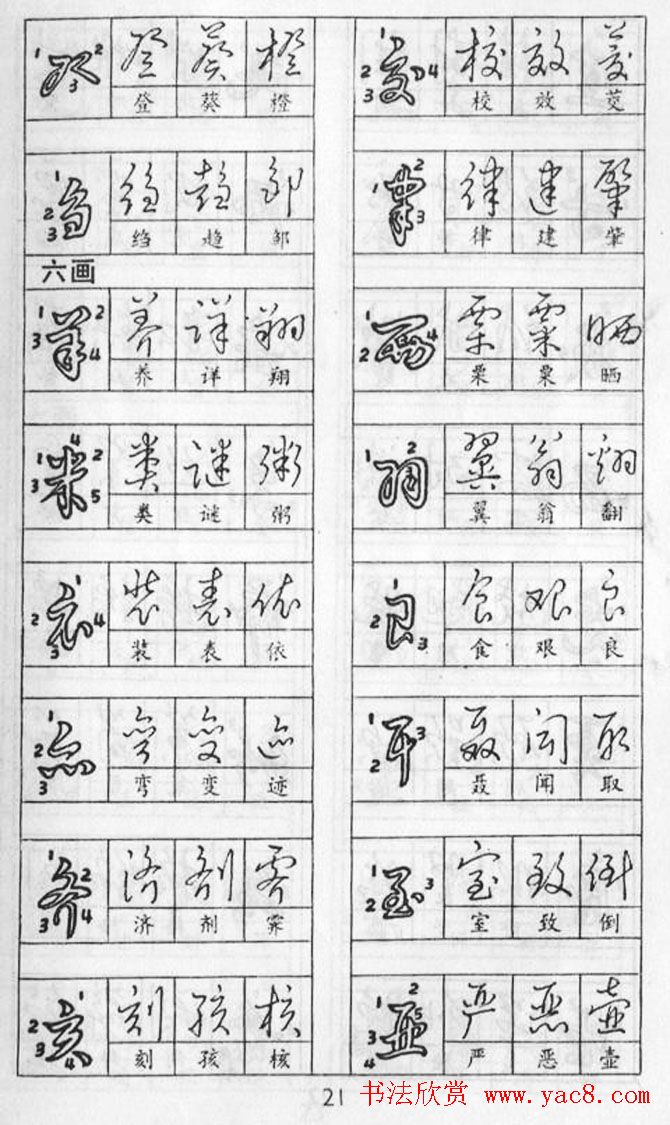 登 葵 橙
绉 趋 邹
六画
养 详 翔
类 谜 粥
装 表 依
弯 变 迹
济 剂 霁
刻 孩 核
校 效 茭
律 建 肇
栗 粟 晒
翼 翁 翻
食 艰 良
聂 闻 取
室 致 倒
严 恶 壶
21 书法欣赏 www.yac8.com